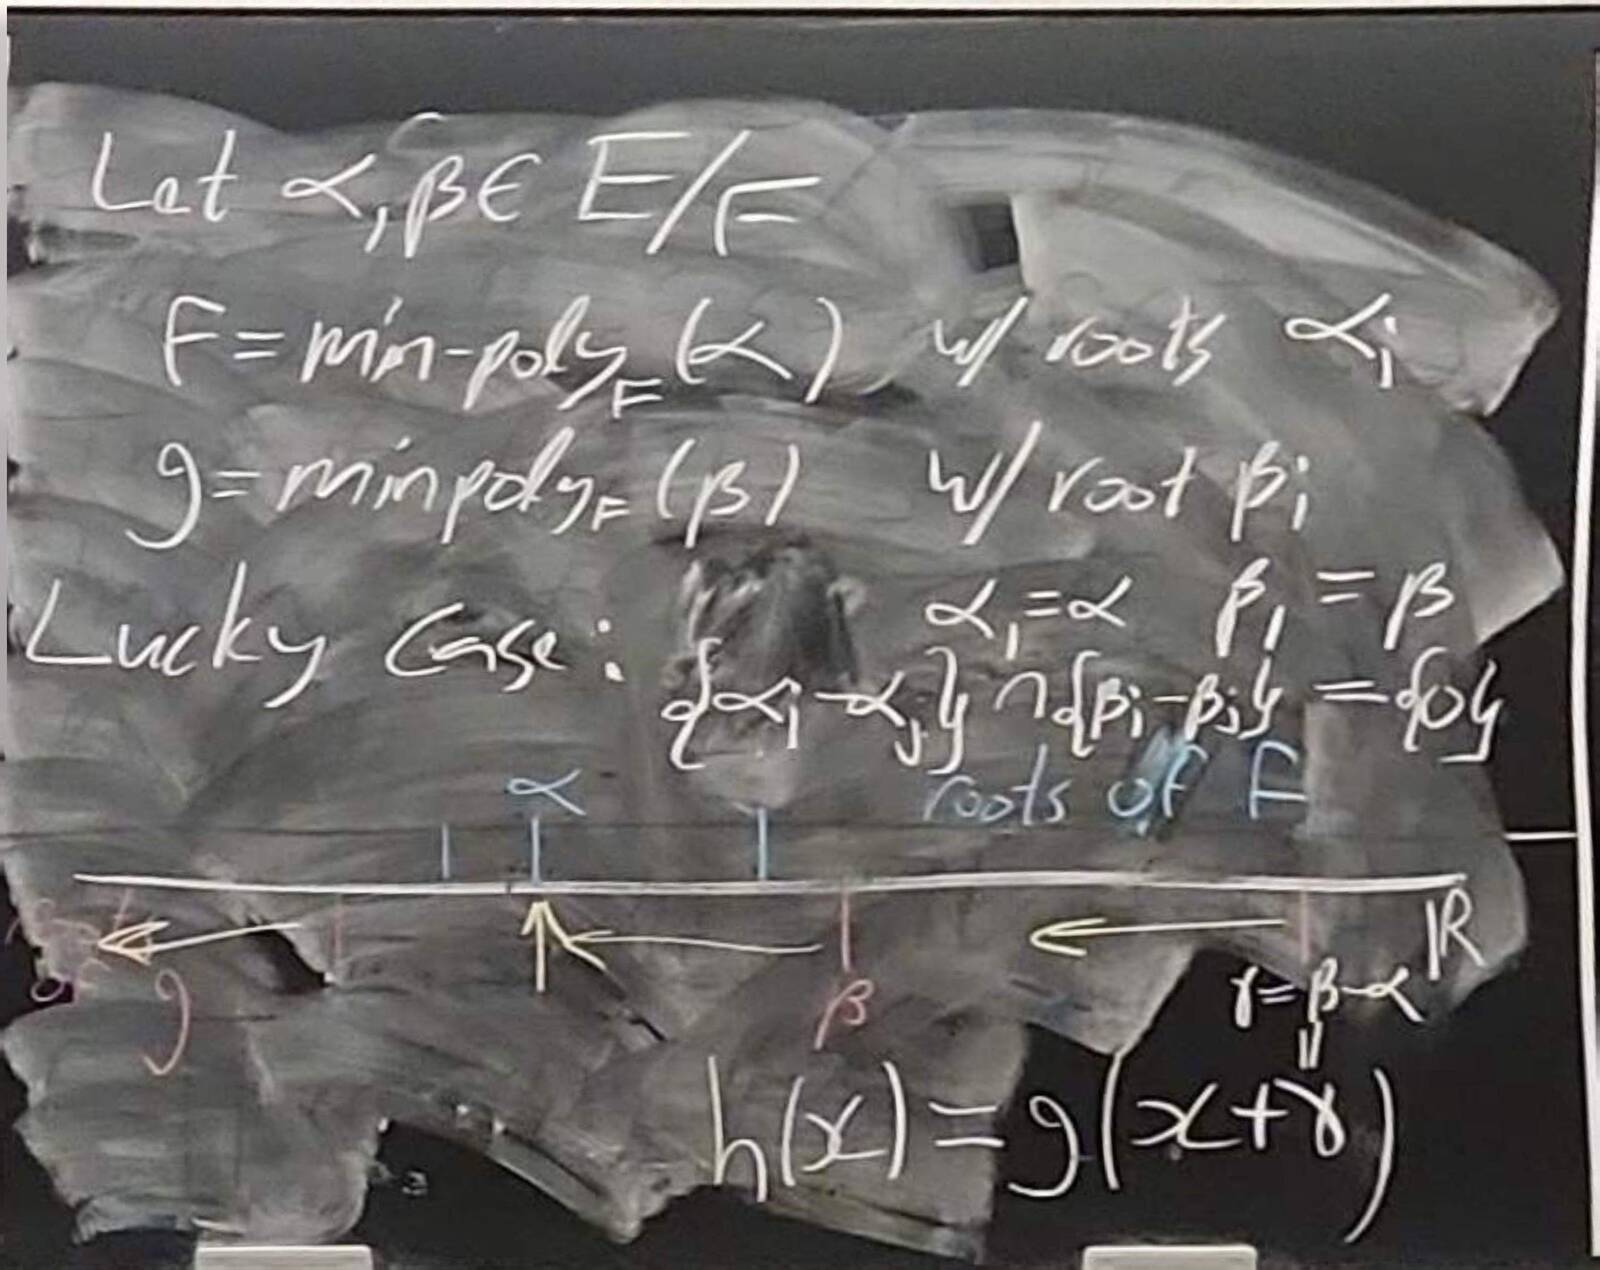 Let α, β ∈ E/F
F = min-poly_F (α) w/ roots α_i
g = minpoly_F (β) w/ root β_i
Lucky Case: α_1 = α β_1 = β
{α_i - α_j} ∩ {β_i - β_j} = {0}
α roots of F
ℝ
g β γ = β - α
h(x) = g(x+γ)